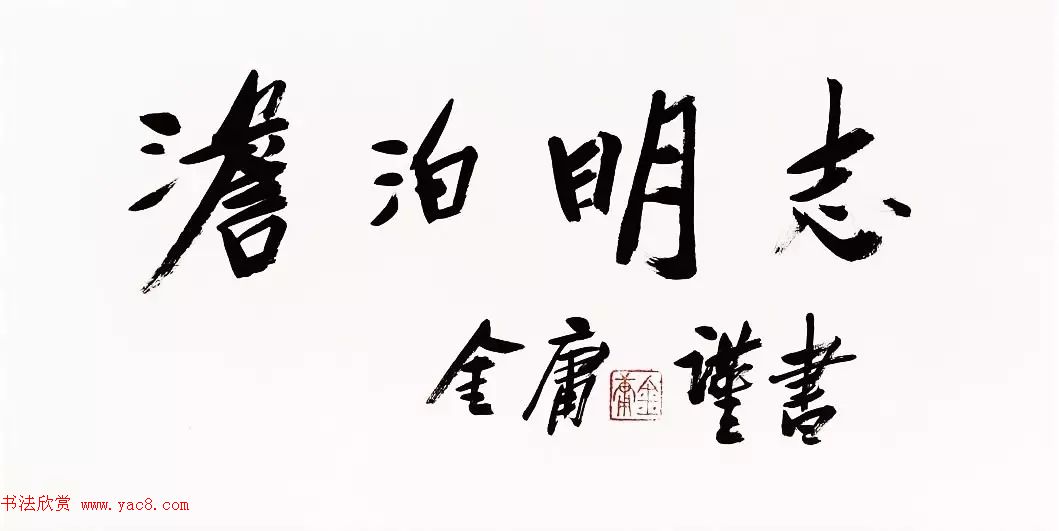 澹泊明志
金庸 謹書
金庸
书法欣赏 www.yac8.com